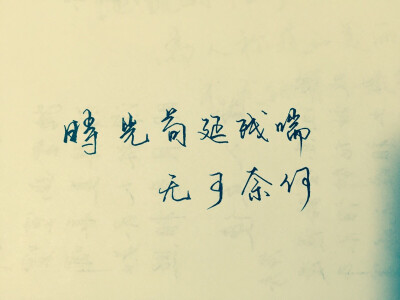 時光苟延残喘
无可奈何